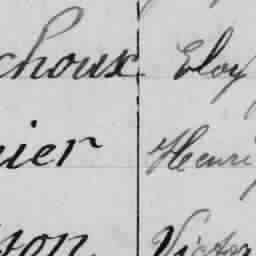 choux Eloy
nier Henri
son Victor